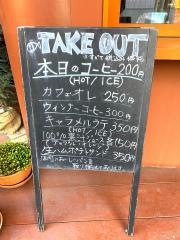 TAKE OUT
本日のコーヒー200円
(HOT/ICE)
カフェオレ 250円
ウィンナーコーヒー300円
キャラメルラテ 350円
(HOT/ICE)
100%
150円
生ハムポテトサンド 350円